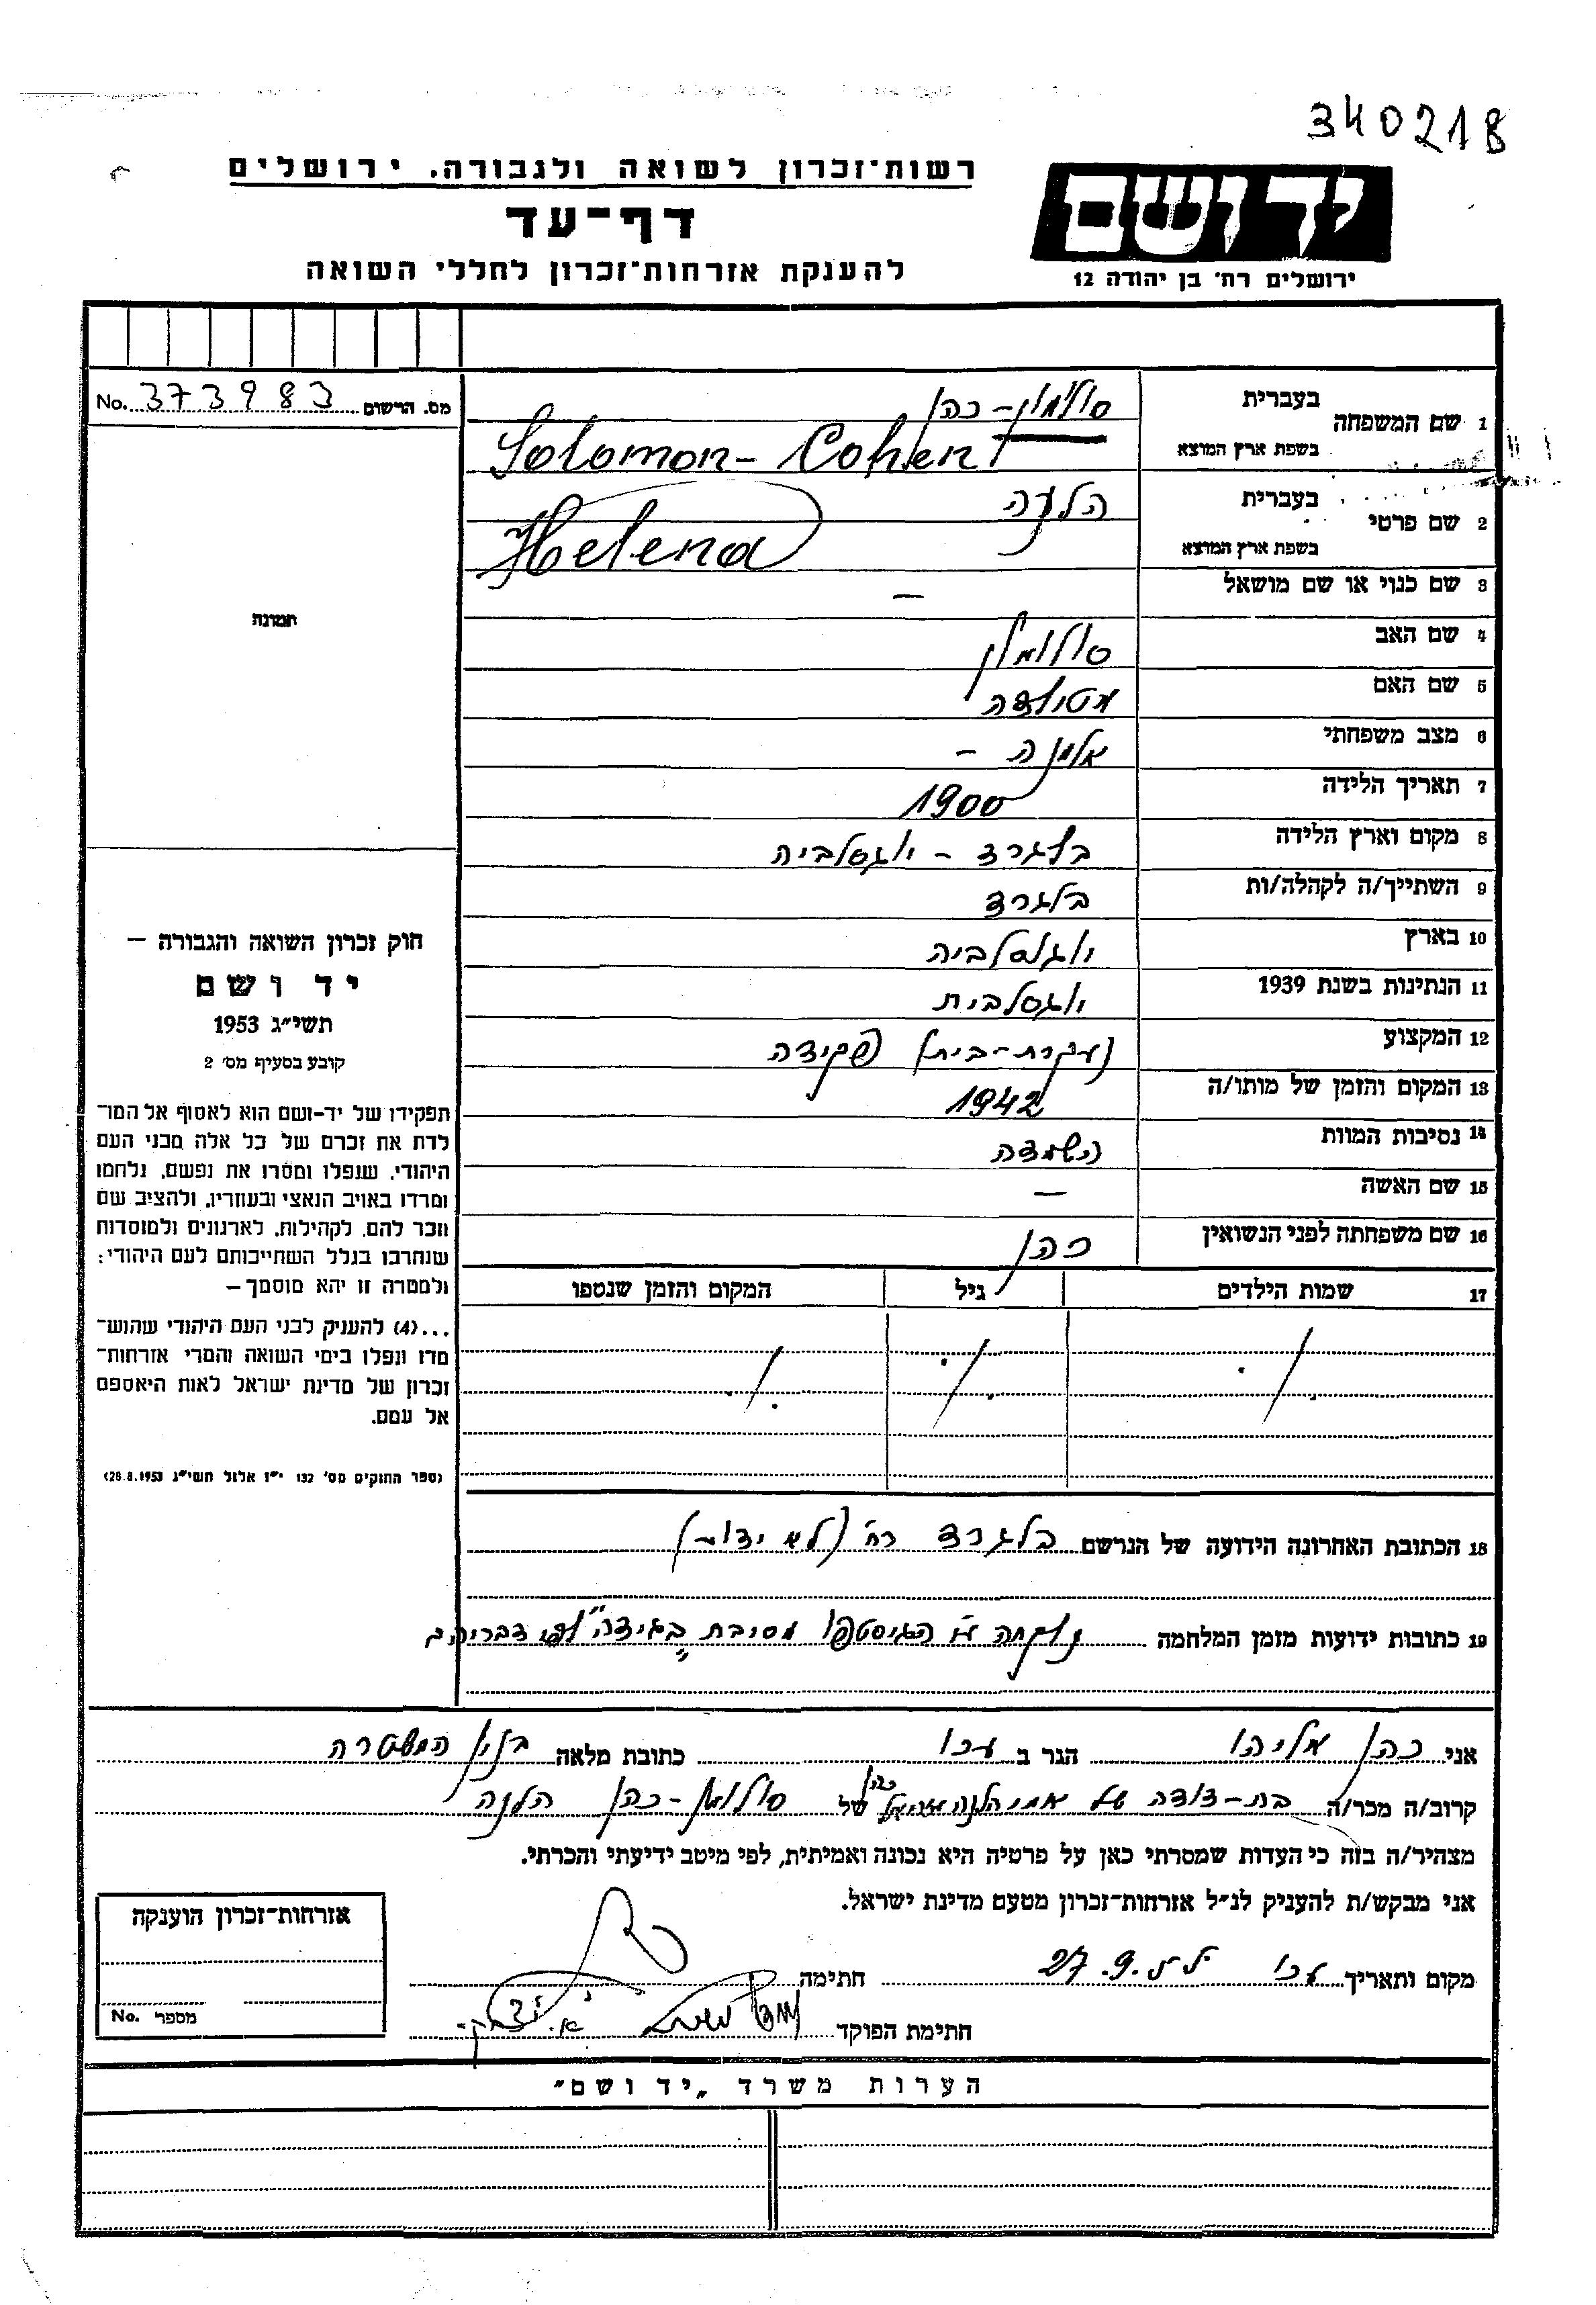 340218
רשות־זכרון לשואה ולגבורה, ירושלים
דף־עד
להענקת אזרחות־זכרון לחללי השואה
יד ושם
ירושלים רח׳ בן יהודה 12
מס. הרשום 373983 No.
1 שם המשפחה
בעברית סולומון-כהן
בשפת ארץ המוצא Solomon - Cohen
2 שם פרטי
בעברית הלנה
בשפת ארץ המוצא Helena
3 שם כנוי או שם מושאל –
4 שם האב סולומון
5 שם האם מטילדה
6 מצב משפחתי אלמנה –
7 תאריך הלידה 1900
8 מקום וארץ הלידה בלגרד - יוגסלביה
9 השתייך/ה לקהלה/ות בלגרד
10 בארץ יוגוסלביה
11 הנתינות בשנת 1939 יוגסלבית
12 המקצוע (עקרת-בית) פקידה
13 המקום והזמן של מותו/ה 1942
14 נסיבות המוות השמדה
15 שם האשה –
16 שם משפחתה לפני הנשואין כהן
17 שמות הילדים גיל המקום והזמן שנספו
./. ./. ./.
18 הכתובת האחרונה הידועה של הנרשם בלגרד רח׳ (לא ידוע)
19 כתובות ידועות מזמן המלחמה נלקחה ע״י הגיסטפו מסיבת "בגידה" לפי דבריהם
תמונה
חוק זכרון השואה והגבורה –
יד ושם
תשי״ג 1953
קובע בסעיף מס׳ 2
תפקידו של יד-ושם הוא לאסוף אל המו־
לדת את זכרם של כל אלה מבני העם
היהודי, שנפלו ומסרו את נפשם, נלחמו
ומרדו באויב הנאצי ובעוזריו, ולהציב שם
וזכר להם, לקהילות, לארגונים ולמוסדות
שנחרבו בגלל השתייכותם לעם היהודי;
ולמטרה זו יהא מוסמך –
...(4) להעניק לבני העם היהודי שהוש־
מדו ונפלו בימי השואה והמרי אזרחות־
זכרון של מדינת ישראל לאות היאספם
אל עמם.
(ספר החוקים מס׳ 132 י״ז אלול תשי״ג 28.8.1953)
אני כהן אליהו הגר ב עכו כתובת מלאה בנין המשטרה
קרוב/ה מכר/ה בת-דודה של אמי הלנה כהן של סולומון-כהן הלנה
מצהיר/ה בזה כי העדות שמסרתי כאן על פרטיה היא נכונה ואמיתית, לפי מיטב ידיעתי והכרתי.
אני מבקש/ת להעניק לנ״ל אזרחות־זכרון מטעם מדינת ישראל.
מקום ותאריך עכו 27.9. חתימה
חתימת הפוקד
אזרחות־זכרון הוענקה
מספר No.
הערות משרד „יד ושם״